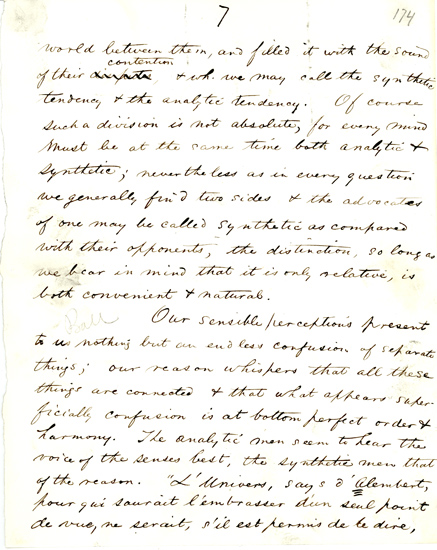 7
174
world between them, and filled it with the sound
contention
of their dispute, & wh. we may call the synthetic
tendency & the analytic tendency. Of course
such a division is not absolute, for every mind
must be at the same time both analytic &
synthetic; nevertheless as in every question
we generally find two sides & the advocates
of one may be called synthetic as compared
with their opponents, the distinction, so long as
we bear in mind that it is only relative, is
both convenient & natural.
Our sensible perceptions present
to us nothing but an endless confusion of separate
things; our reason whispers that all these
things are connected & that what appears super-
ficially confusion is at bottom perfect order &
harmony. The analytic men seem to hear the
voice of the senses best, the synthetic men that
of the reason. "L'Univers, says d'Alembert,
pour qui saurait l'embrasser d'un seul point
de vue, ne serait, s'il est permis de le dire,